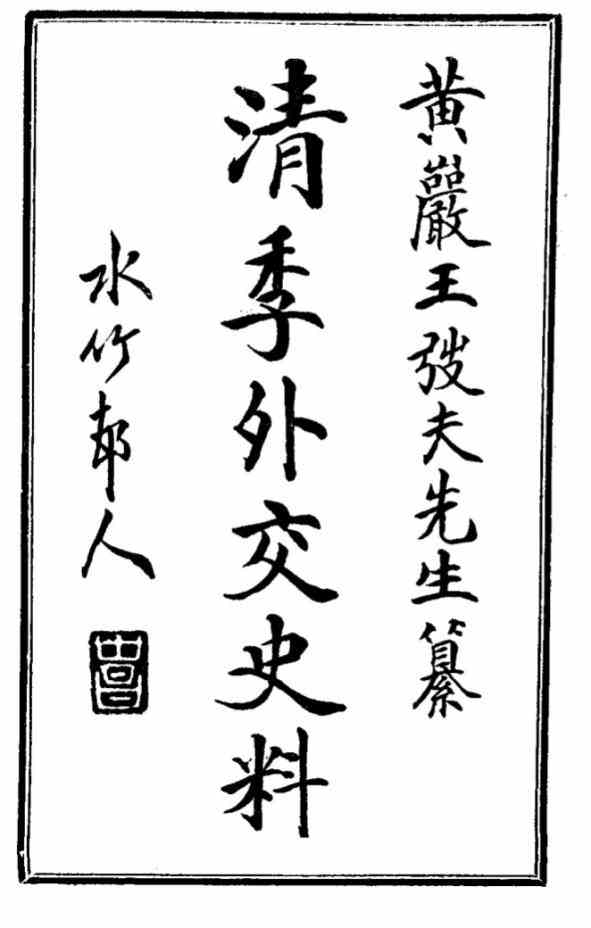 黄巖王弢夫先生纂
清季外交史料
水竹邨人